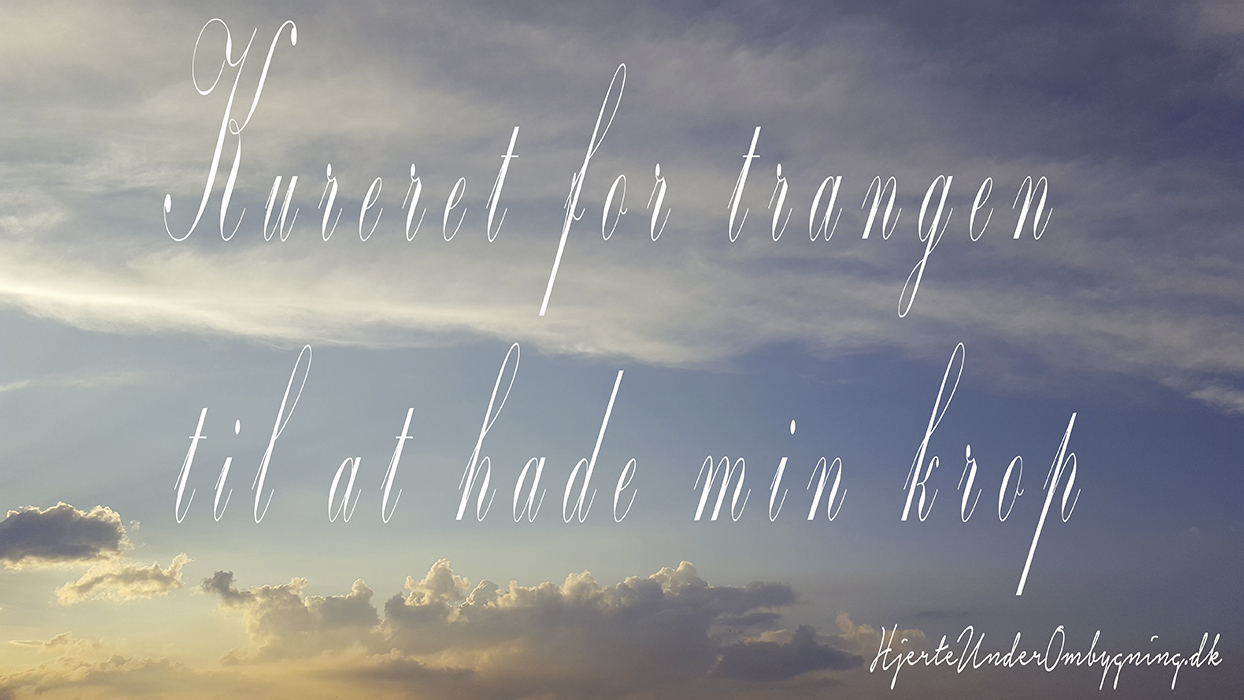 Kureret for trangen
til at hade min krop
HjerteUnderOmbygning.dk